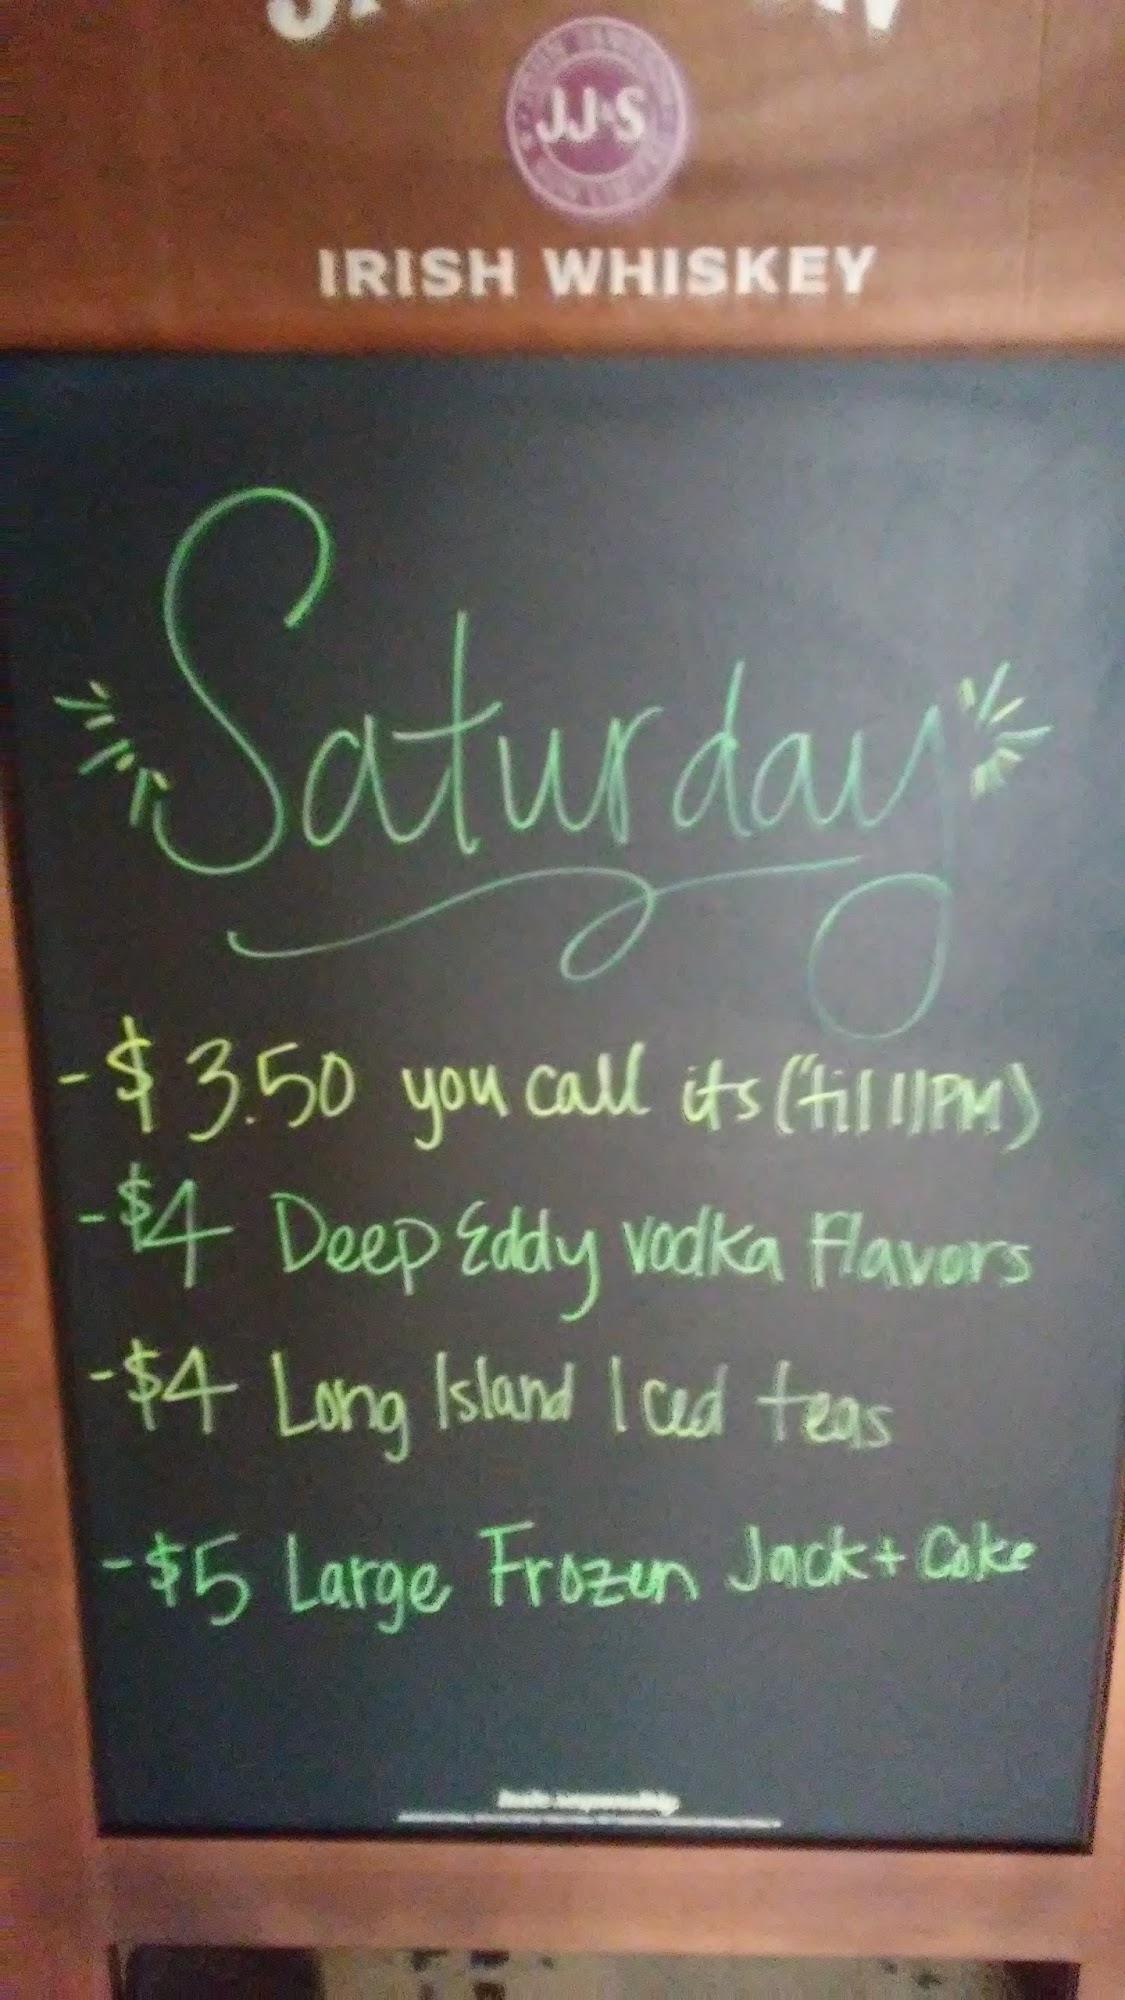 JJ&S
IRISH WHISKEY
Saturday
- $3.50 you call its ("til 11PM)
- $4 Deep Eddy vodka Flavors
- $4 Long Island Iced teas
- $5 Large Frozen Jack + Coke